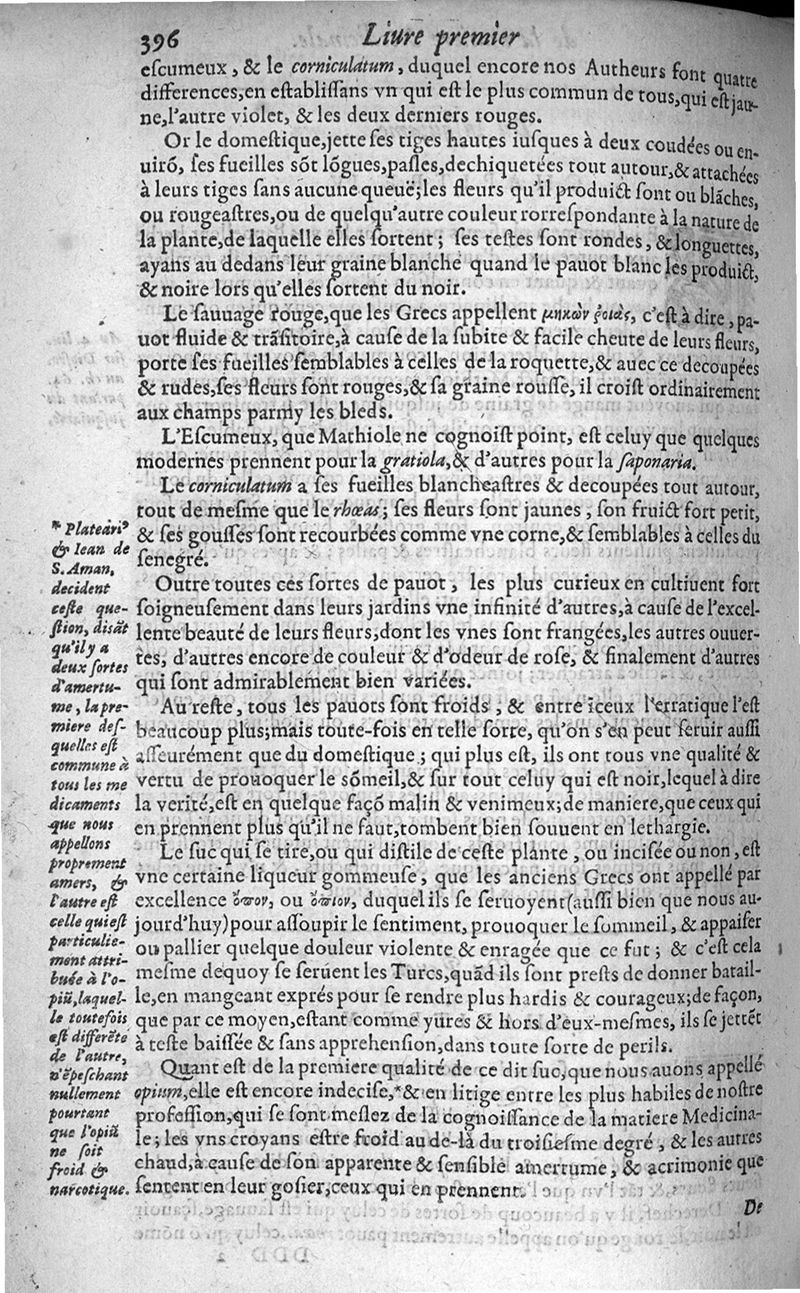 396
Liure premier
eſcumeux, & le corniculatum, duquel encore nos Autheurs font quatre
differences, en eſtabliſſans vn qui eſt le plus commun de tous, qui eſt jau-
ne, l'autre violet, & les deux derniers rouges.
Or le domeſtique, jette ſes tiges hautes iuſques à deux coudées ou en-
uirõ, ſes fueilles sõt lõgues, paſles, dechiquetées tout autour, & attachées
à leurs tiges ſans aucune queuë; les fleurs qu'il produict ſont ou blãches,
ou rougeaſtres, ou de quelqu'autre couleur rorreſpondante à la nature de
la plante, de laquelle elles ſortent; ſes teſtes ſont rondes, & longuettes,
ayans au dedans leur graine blanche quand le pauot blanc les produict,
& noire lors qu'elles ſortent du noir.
Le ſauuage rouge, que les Grecs appellent μηκὼν ῥοιὰς, c'eſt à dire, pa-
uot fluide & trãſitoire, à cauſe de la ſubite & facile cheute de leurs fleurs,
porte ſes fueilles ſemblables à celles de la roquette, & auec ce decoupées
& rudes, ſes fleurs ſont rouges, & ſa graine rouſſe, il croiſt ordinairement
aux champs parmy les bleds.
L'Eſcumeux, que Mathiole ne cognoiſt point, eſt celuy que quelques
modernes prennent pour la gratiola, & d'autres pour la ſaponaria.
Le corniculatum a ſes fueilles blancheaſtres & decoupées tout autour,
tout de meſme que le rhœas; ſes fleurs ſont jaunes, ſon fruict fort petit,
& ſes gouſſes ſont recourbées comme vne corne, & ſemblables à celles du
ſenegré.
Outre toutes ces ſortes de pauot, les plus curieux en cultiuent fort
ſoigneuſement dans leurs jardins vne infinité d'autres, à cauſe de l'excel-
lente beauté de leurs fleurs, dont les vnes ſont frangées, les autres ouuer-
tes, d'autres encore de couleur & d'odeur de roſe, & finalement d'autres
qui ſont admirablement bien variées.
Au reſte, tous les pauots ſont froids, & entre iceux l'erratique l'eſt
beaucoup plus; mais toute-fois en telle ſorte, qu'on s'en peut ſeruir auſſi
aſſeurément que du domeſtique; qui plus eſt, ils ont tous vne qualité &
vertu de prouoquer le sõmeil, & ſur tout celuy qui eſt noir, lequel à dire
la verité, eſt en quelque façõ malin & venimeux; de maniere, que ceux qui
en prennent plus qu'il ne faut, tombent bien ſouuent en lethargie.
Le ſuc qui ſe tire, ou qui diſtile de ceſte plante, ou inciſée ou non, eſt
vne certaine liqueur gommeuſe, que les anciens Grecs ont appellé par
excellence ὄπον, ou ὄπιον, duquel ils ſe ſeruoyent (auſſi bien que nous au-
jourd'huy) pour aſſoupir le ſentiment, prouoquer le ſommeil, & appaiſer
ou pallier quelque douleur violente & enragée que ce fut; & c'eſt cela
meſme dequoy ſe ſeruent les Turcs, quãd ils ſont preſts de donner batail-
le, en mangeant exprés pour ſe rendre plus hardis & courageux; de façon,
que par ce moyen, eſtant comme yures & hors d'eux-meſmes, ils ſe jettẽt
à teſte baiſſée & ſans apprehenſion, dans toute ſorte de perils.
Quant eſt de la premiere qualité de ce dit ſuc, que nous auons appellé
opium, elle eſt encore indeciſe,* & en litige entre les plus habiles de noſtre
profeſſion, qui ſe ſont meſlez de la cognoiſſance de la matiere Medicina-
le; les vns croyans eſtre froid au de-là du troiſieſme degré, & les autres
chaud, à cauſe de ſon apparente & ſenſible amertume, & acrimonie que
ſentent en leur goſier, ceux qui en prennent.
De
* Plateari9
& Iean de
S. Aman,
decident
ceſte que-
ſtion, diſãt
qu'il y a
deux ſortes
d'amertu-
me, la pre-
miere deſ-
quelles eſt
commune à
tous les me
dicaments
que nous
appellons
proprement
amers, &
l'autre eſt
celle qui eſt
particulie-
ment attri-
buée à l'o-
piũ, laquel-
le toutefois
eſt differẽte
de l'autre,
n'ẽpeſchant
nullement
pourtant
que l'opiũ
ne ſoit
froid &
narcotique.